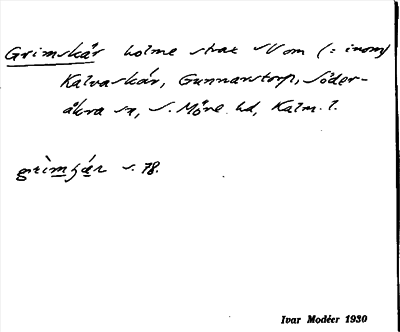 Grimskär holme strax SV om (: inom)
Kalvaskär, Gunnarstorp, Söder-
åkra sn, S. Möre hd, Kalm. l.
s. 78.
Ivar Modéer 1930